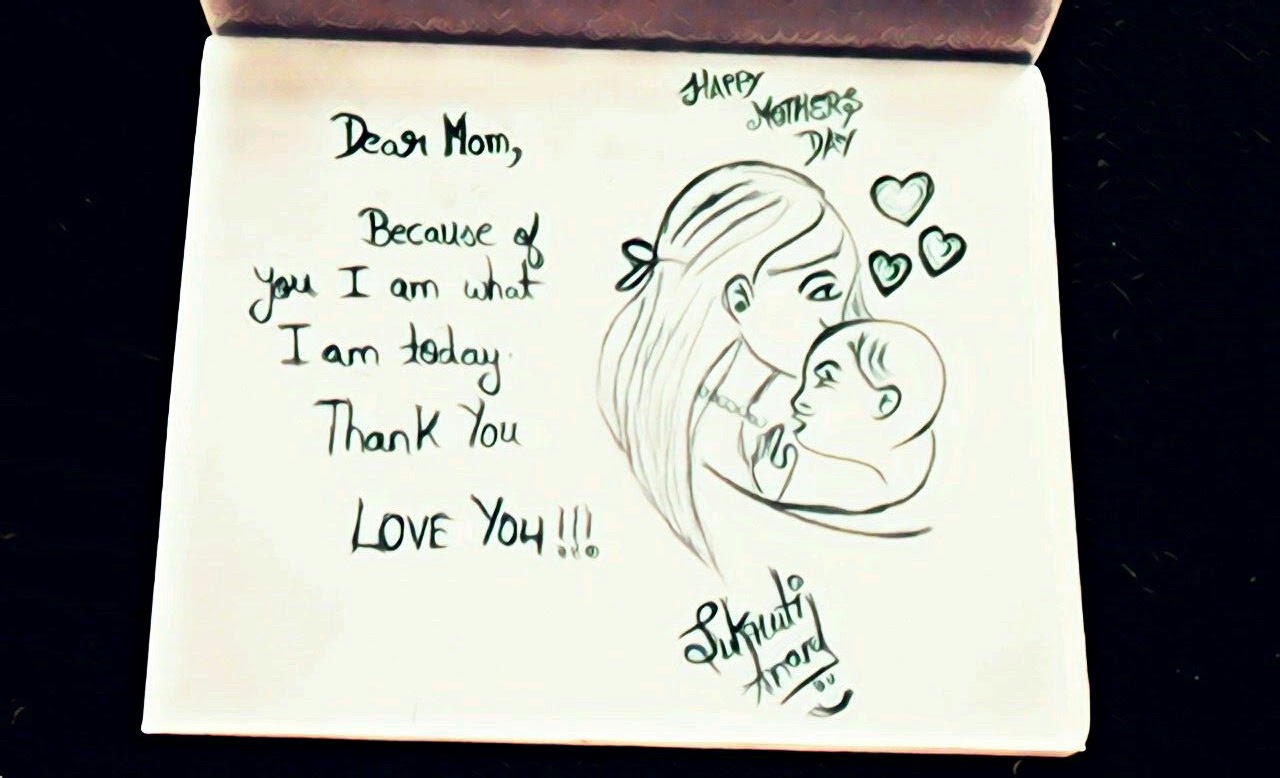 Dear Mom,
Because of
you I am what
I am today.
Thank You
LOVE YOU!!!
HAPPY
MOTHERS
DAY
Sukruti
Anand